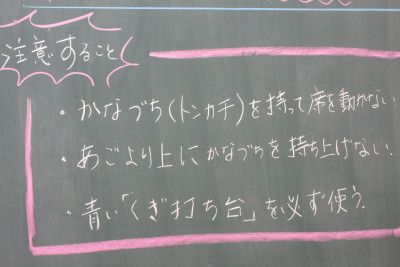 注意すること
・かなづち(トンカチ)を持って席を動かない
・あごより上にかなづちを持ち上げない.
・青い「くぎ打ち台」を必ず使う.